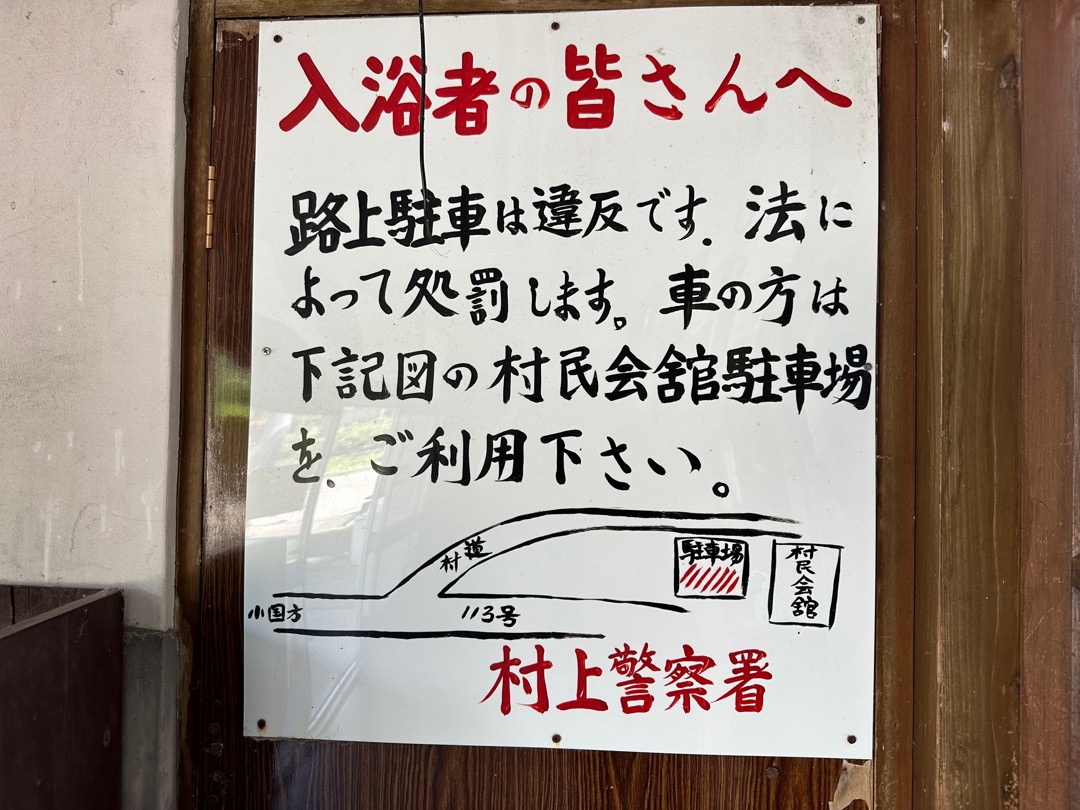 入浴者の皆さんへ
路上駐車は違反です.法に
よって処罰します。車の方は
下記図の村民会舘駐車場
を、ご利用下さい。
村道
駐車場
村民会舘
小国方
113号
村上警察署